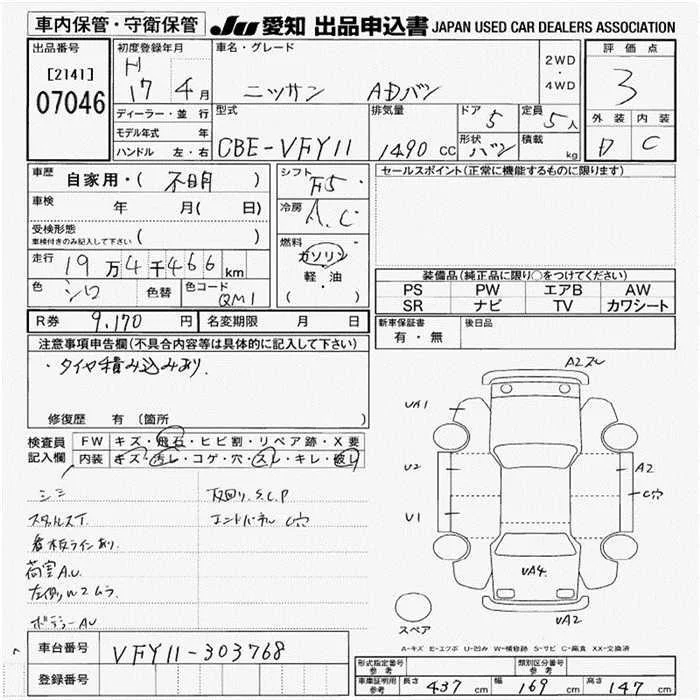 車内保管・守衛保管 JU 愛知 出品申込書 JAPAN USED CAR DEALERS ASSOCIATION
出品番号 初度登録年月 車名・グレード 2WD・4WD 評価点
[2141] H 17 4月 ニッサン ADバン 3
07046 ディーラー・並行 型式 排気量 ドア 5 定員 5人 外装 内装
モデル年式 年 CBE-VFY11 1490 CC 形状 バン 積載 kg D C
ハンドル 左・右
車歴 自家用・( 不明 ) シフト F5 セールスポイント(正常に機能するものに限ります)
車検 年 月( 日) 冷房 A.C
受検形態 車検付きのみ記入して下さい ( )
走行 19万4千466km 燃料 ガソリン 軽・油 ・( )
色 シロ 色替 色コード QM1
装備品(純正品に限り○をつけてください)
PS PW エアB AW
SR ナビ TV カワシート
R券 9,170 円 名変期限 月 日
新車保証書 有・無 後日品
注意事項申告欄(不具合内容等は具体的に記入して下さい)
・タイヤ積み込みあり.
修復歴 有 (箇所 )
検査員記入欄 FW キズ・飛石・ヒビ割・リペア跡・X要
内装 キズ・汚レ・コゲ・穴・スレ・キレ・破レ
シミ 下回り.S.C.P
スタッドレスT. エンドパネル C穴
看板ラインあり.
荷室A.U.
左側W2ムラ
ボデーAU
A2スレ
UA1
U2 A2
C穴
U1
UA4.
UA2
スペア
A-キズ E-エクボ U-凹み W-補修跡 S-サビ C-腐食 XX-交換済
車台番号 VFY11-303768
登録番号
形式指定番号 参考 類別区分番号 参考
車庫証明用 参考 長さ 437 cm 幅 169 cm 高さ 147 cm